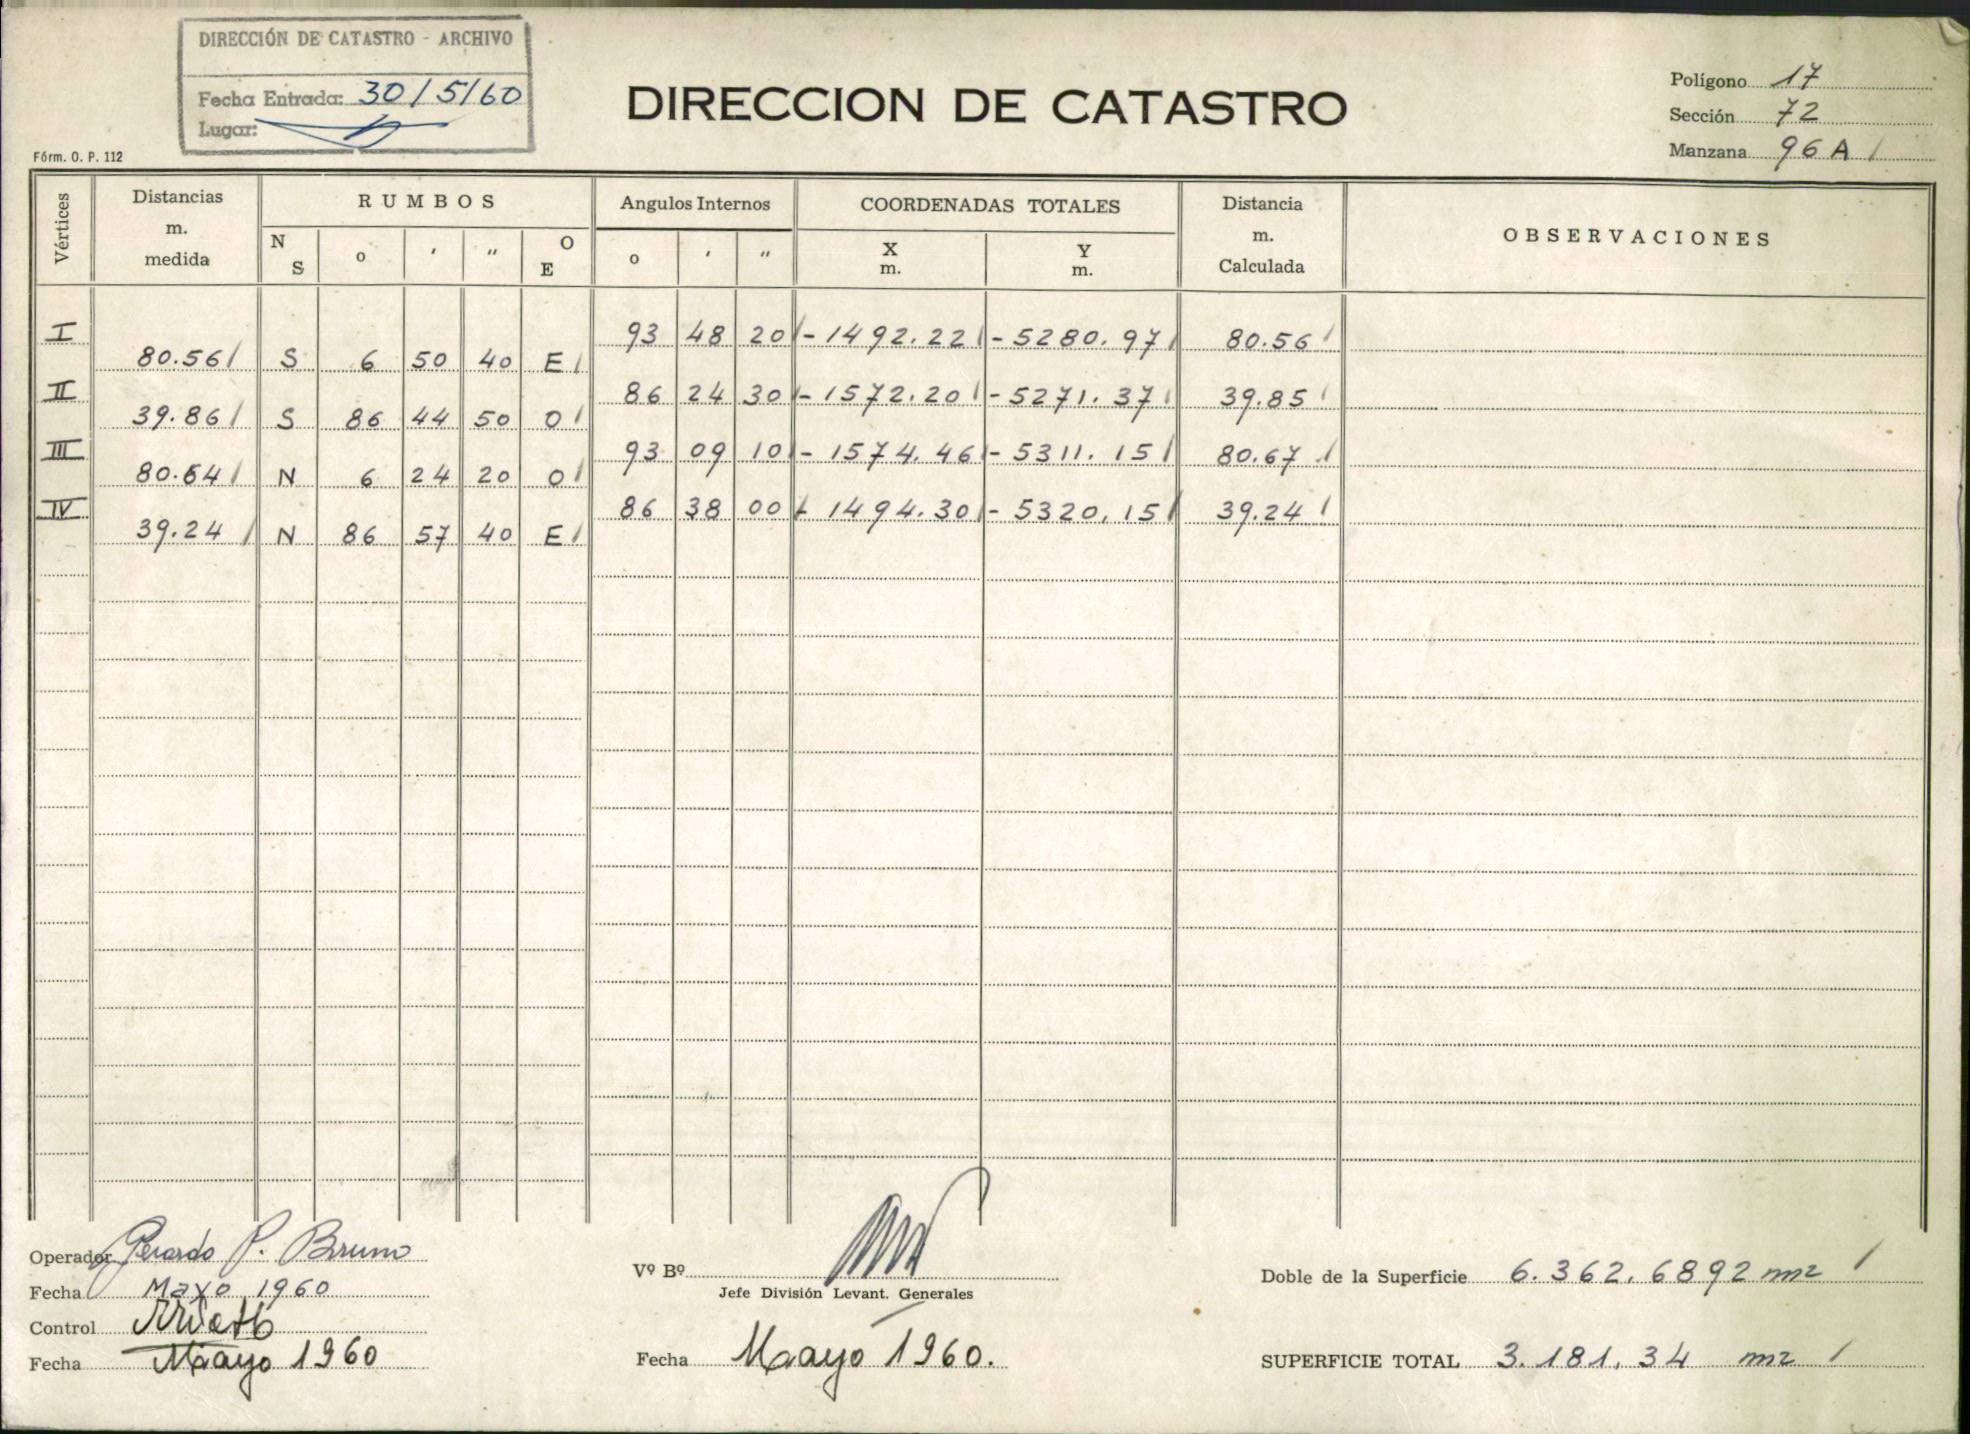 DIRECCIÓN DE CATASTRO - ARCHIVO
Fecha Entrada: 30/5/60
Lugar:
DIRECCION DE CATASTRO
Polígono 17
Sección 72
Manzana 96 A
Fórm. O. P. 112
Vértices Distancias m. medida RUMBOS Angulos Internos COORDENADAS TOTALES Distancia m. Calculada OBSERVACIONES
N S o ' " O E o ' " X m. Y m.
I 93 48 20 -1492.22 -5280.97 80.56
80.56 S 6 50 40 E
II 86 24 30 -1572.20 -5271.37 39.85
39.86 S 86 44 50 O
III 93 09 10 -1574.46 -5311.15 80.67
80.64 N 6 24 20 O
IV 86 38 00 -1494.30 -5320.15 39.24
39.24 N 86 57 40 E
Operador Gerardo P. Bruno
Fecha Mayo 1960
Control
Fecha Mayo 1960
Vº Bº
Jefe División Levant. Generales
Fecha Mayo 1960.
Doble de la Superficie 6.362.6892 m2
SUPERFICIE TOTAL 3.181.34 m2